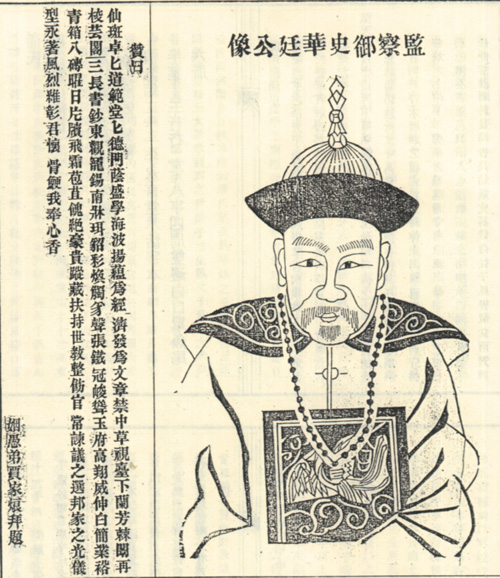 監察御史華廷公像
贊曰
仙斑卓匕道範堂匕德門蔭盛學海波揚蘊爲經濟發爲文章禁中草視臺下蘭芳棘闈再
棱芸閣三長書鈔東觀籠錫南牀珥貂彩煥觸豸聲張鐵冠峻聳玉府高翔威伸白簡業裕
青箱八磚暇日片牘飛霜苞苴愧絕豪貴蹤藏扶持世教整飭官常諫議之選邦家之光儀
型永著風烈難彰君懷骨鯁我奉心香
姻愚弟賈家拜題